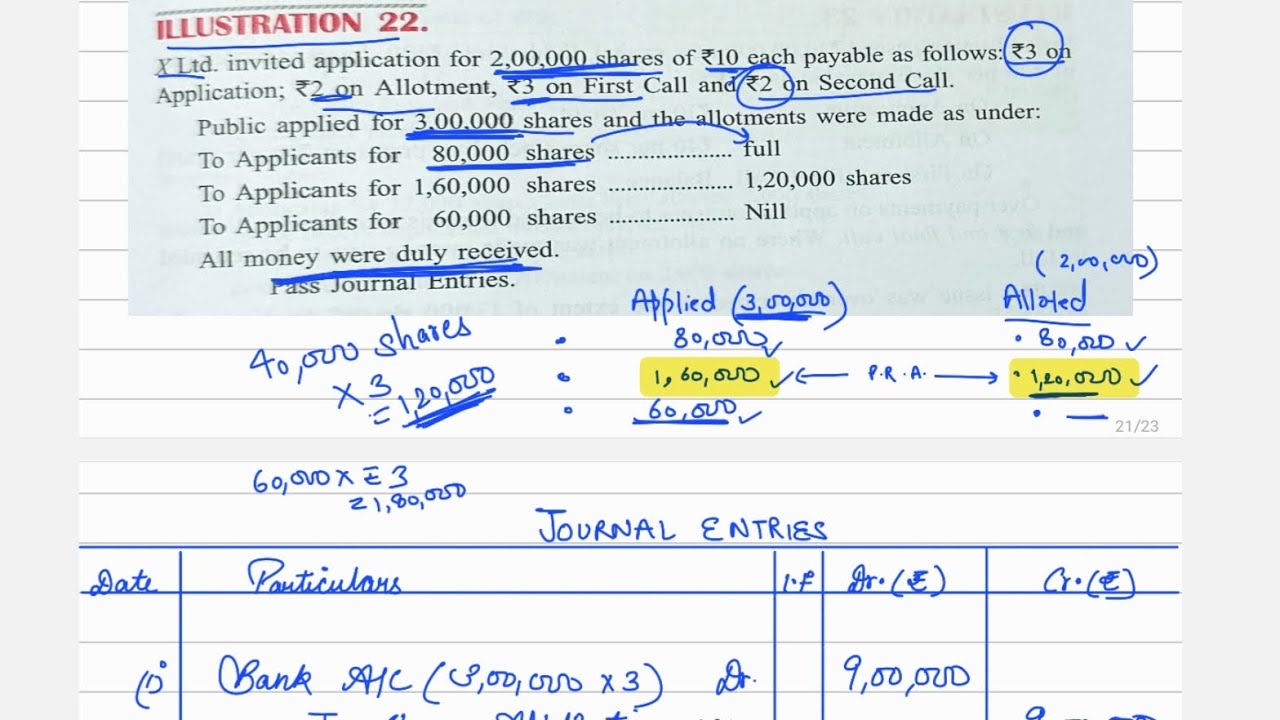 ILLUSTRATION 22.
X Ltd. invited application for 2,00,000 shares of ₹10 each payable as follows: ₹3 on
Application; ₹2 on Allotment, ₹3 on First Call and ₹2 on Second Call.
Public applied for 3,00,000 shares and the allotments were made as under:
To Applicants for 80,000 shares .................... full
To Applicants for 1,60,000 shares .................... 1,20,000 shares
To Applicants for 60,000 shares .................... Nill
All money were duly received.
Pass Journal Entries.
(2,00,000)
Applied (3,00,000) Alloted
40,000 shares
× 3
= 1,20,000
• 80,000 ✓ • 80,000 ✓
• 1,60,000 ✓ ← P.R.A. → • 1,20,000 ✓
• 60,000 ✓ • —
21/23
60,000 × ₹3
= 1,80,000
JOURNAL ENTRIES
Date Particulars l.f Dr. (₹) Cr. (₹)
(1) Bank A/C (3,00,000 × 3) Dr. 9,00,000